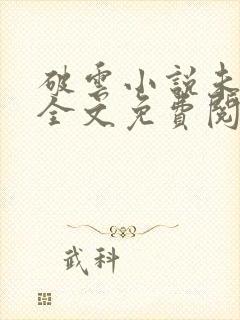 破雲小說未
全文免費閱
武科